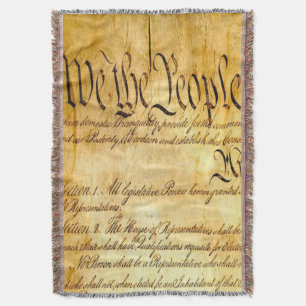 We the People
domestic Tranquility, provide for the common
and our Posterity, do ordain and establish this Cons
Section. 1. All legislative Powers herein granted s
Representatives.
Section. 2. The House of Representatives shall be
each State shall have the Qualifications requisite for Elector
No Person shall be a Representative who s
who shall not, when elected, be an Inhabitant of that